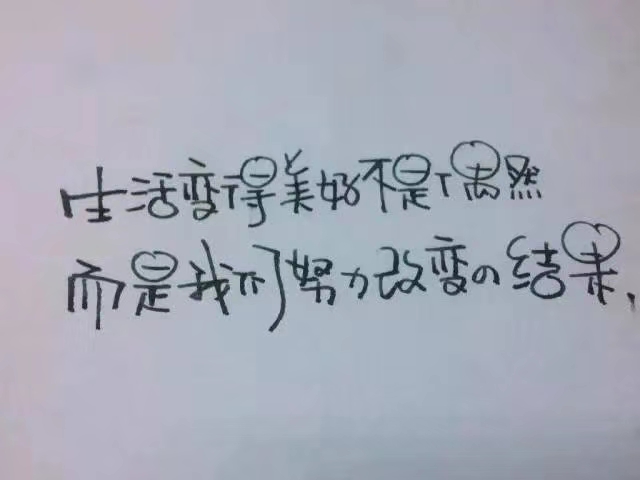 生活变得美好不是偶然
而是我们努力改变の结果、